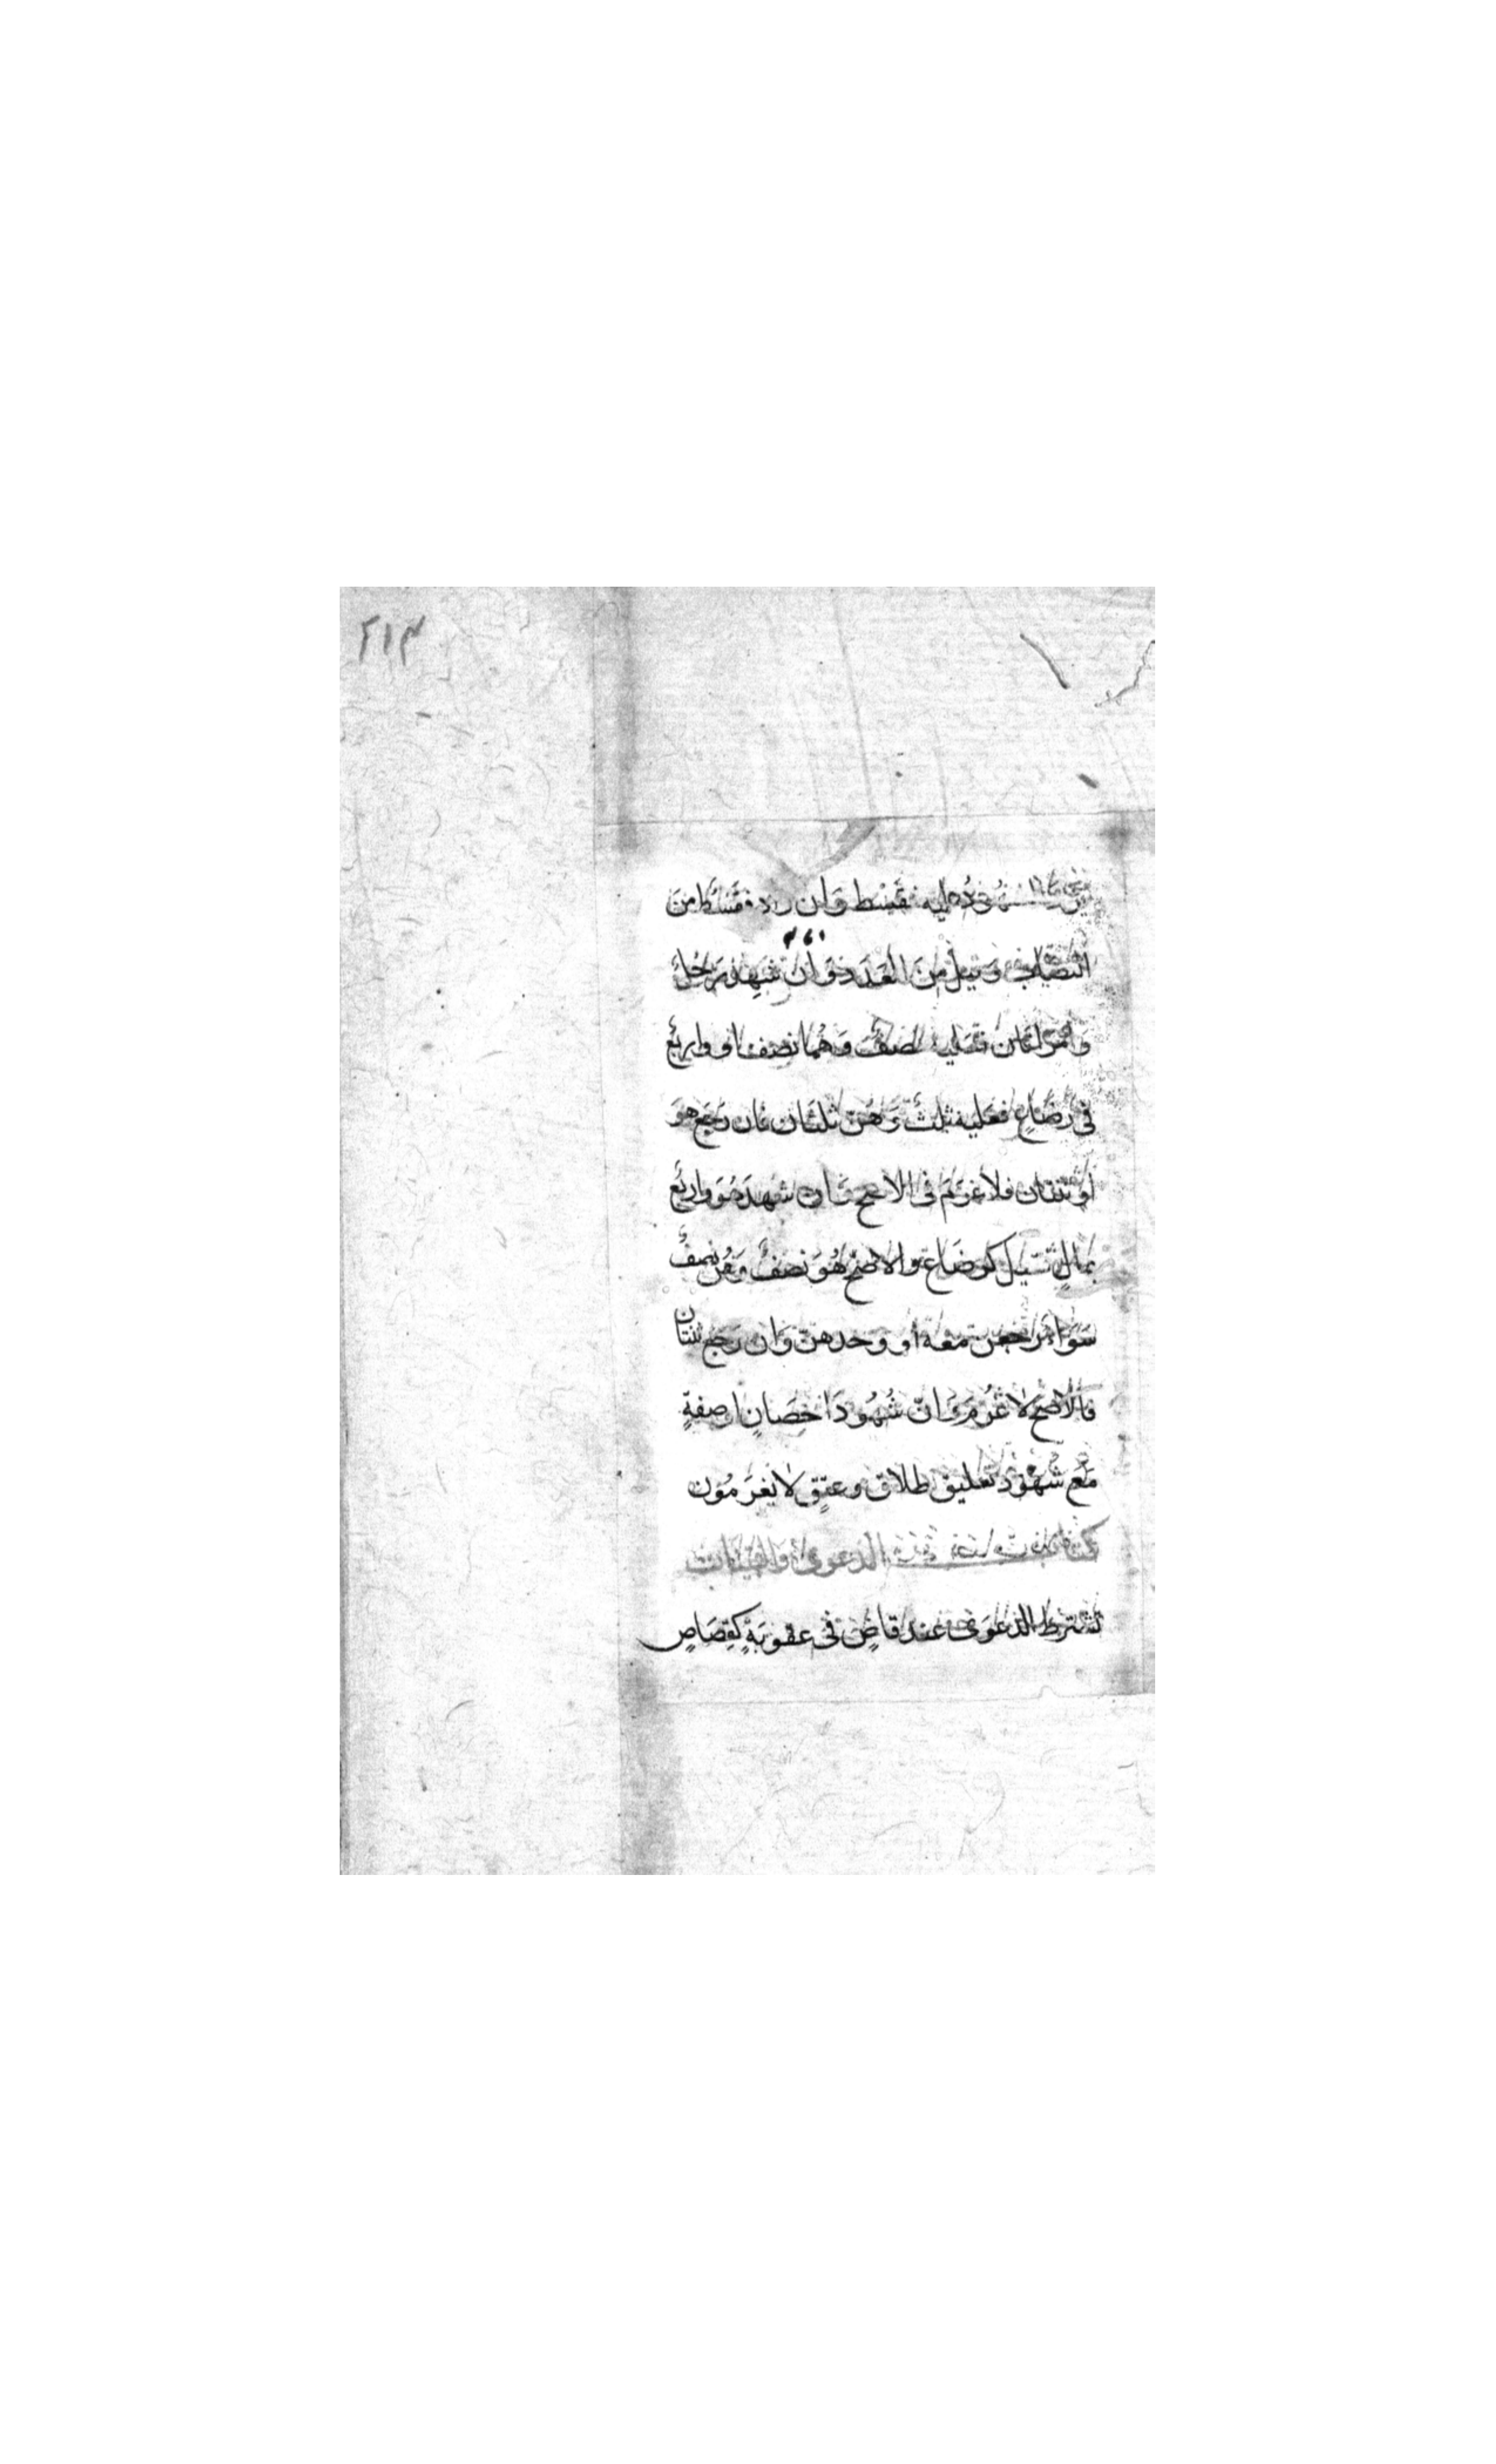 ٢١٣
فعليه فقسط وان زاد فقسط من
النصاب وقيل من العدد وان شهد رجل
وامراتان فعليه نصف وهما نصف او واربع
فى رضاع فعليه ثلث وهن ثلثان فان رجع هو
او ثنتان فلا غرم فى الاصح وان شهد هو واربع
بمال قيل كرضاع والاصح هو نصف وهن نصف
سوا رجعن معه او وحدهن وان رجع ثنتان
فالاصح لا غرم وان شهود احصان او صفة
مع شهود تعليق طلاق وعتق لا يغرمون
كتاب الدعوى والبينات
تشترط الدعوى عند قاض فى عقوبة كقصاص